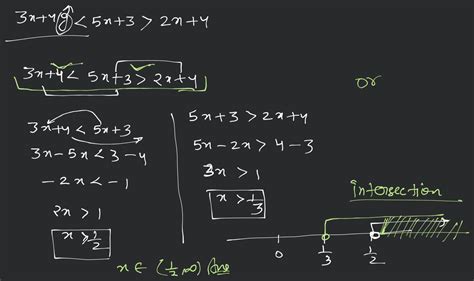 3x+4y < 5x+3 > 2x+4
3x+4 < 5x+3 > 2x+4
or
3x+4 < 5x+3
3x-5x < 3-4
-2x < -1
2x > 1
x > 1/2
5x+3 > 2x+4
5x-2x > 4-3
3x > 1
x > 1/3
intersection
0 1/3 1/2
x ∈ (1/2, ∞) Ans